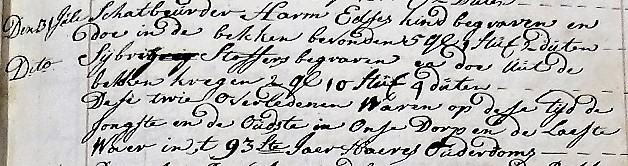 Den 31 Júli Schatbeúrder Harm Edses kind begraven en
doe in de bekken bevonden 5 gl 1 Stúf 2 dúten
Dito Sijbrig Stoffers begraven en doe úút de
bekken kregen 2 gl 10 Stúf 4 dúten
Dese twie overledenen Waren op dese tijd de
Jongste en de Oúdste in Onse Dorp en de Laeste
Waer in t 93ste Jaer Haeres Oúderdoms